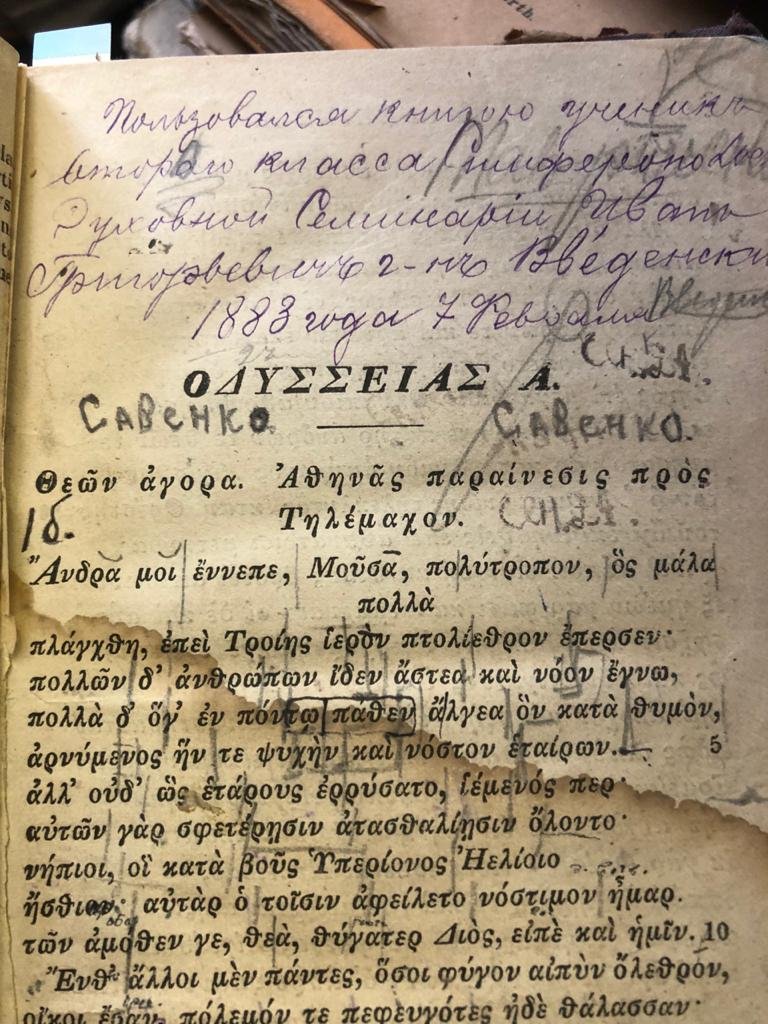 Пользовался книгою ученикъ
второго класса Симферопол
Духовной Семинаріи Иванъ
Григорьевичъ г-нъ Введенск
1883 года 7 Февраля
ΟΔΥΣΣΕΙΑΣ Α.
САВЕНКО САВЕНКО.
Θεῶν ἀγορα. Ἀθηνᾶς παραίνεσις πρὸς
Τηλέμαχον.
1δ.
Ἄνδρα μοι ἔννεπε, Μοῦσα, πολύτροπον, ὃς μάλα
πολλὰ
πλάγχθη, ἐπεὶ Τροίης ἱερὸν πτολίεθρον ἔπερσεν·
πολλῶν δ' ἀνθρώπων ἴδεν ἄστεα καὶ νόον ἔγνω,
πολλὰ δ' ὅγ' ἐν πόντῳ πάθεν ἄλγεα ὃν κατὰ θυμὸν,
ἀρνύμενος ἥν τε ψυχὴν καὶ νόστον ἑταίρων. 5
ἀλλ' οὐδ' ὣς ἑτάρους ἐρρύσατο, ἱέμενός περ·
αὐτῶν γὰρ σφετέρῃσιν ἀτασθαλίῃσιν ὄλοντο·
νήπιοι, οἳ κατὰ βοῦς Ὑπερίονος Ἠελίοιο
ἤσθιον· αὐτὰρ ὁ τοῖσιν ἀφείλετο νόστιμον ἦμαρ.
τῶν ἁμόθεν γε, θεὰ, θύγατερ Διὸς, εἰπὲ καὶ ἡμῖν. 10
Ἔνθ' ἄλλοι μὲν πάντες, ὅσοι φύγον αἰπὺν ὄλεθρον,
οἴκοι ἔσαν, πόλεμόν τε πεφευγότες ἠδὲ θάλασσαν·